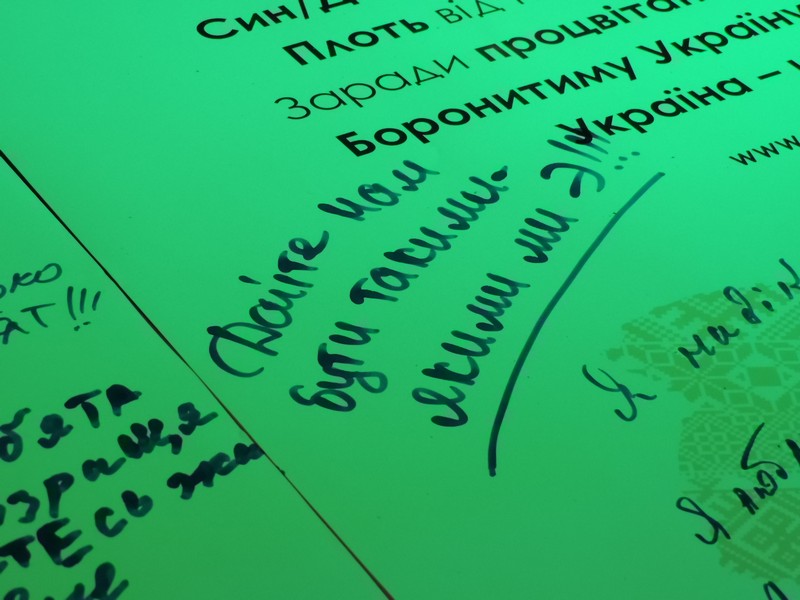 Син/Д
Плоть від
Заради процвітан
Боронитиму Україну
Україна –
www.
Дайте нам
бути такими,
якими ми Э!!!...
око
ЯТ!!!
бята
озраща
тесь жи
Я надія
Я любл